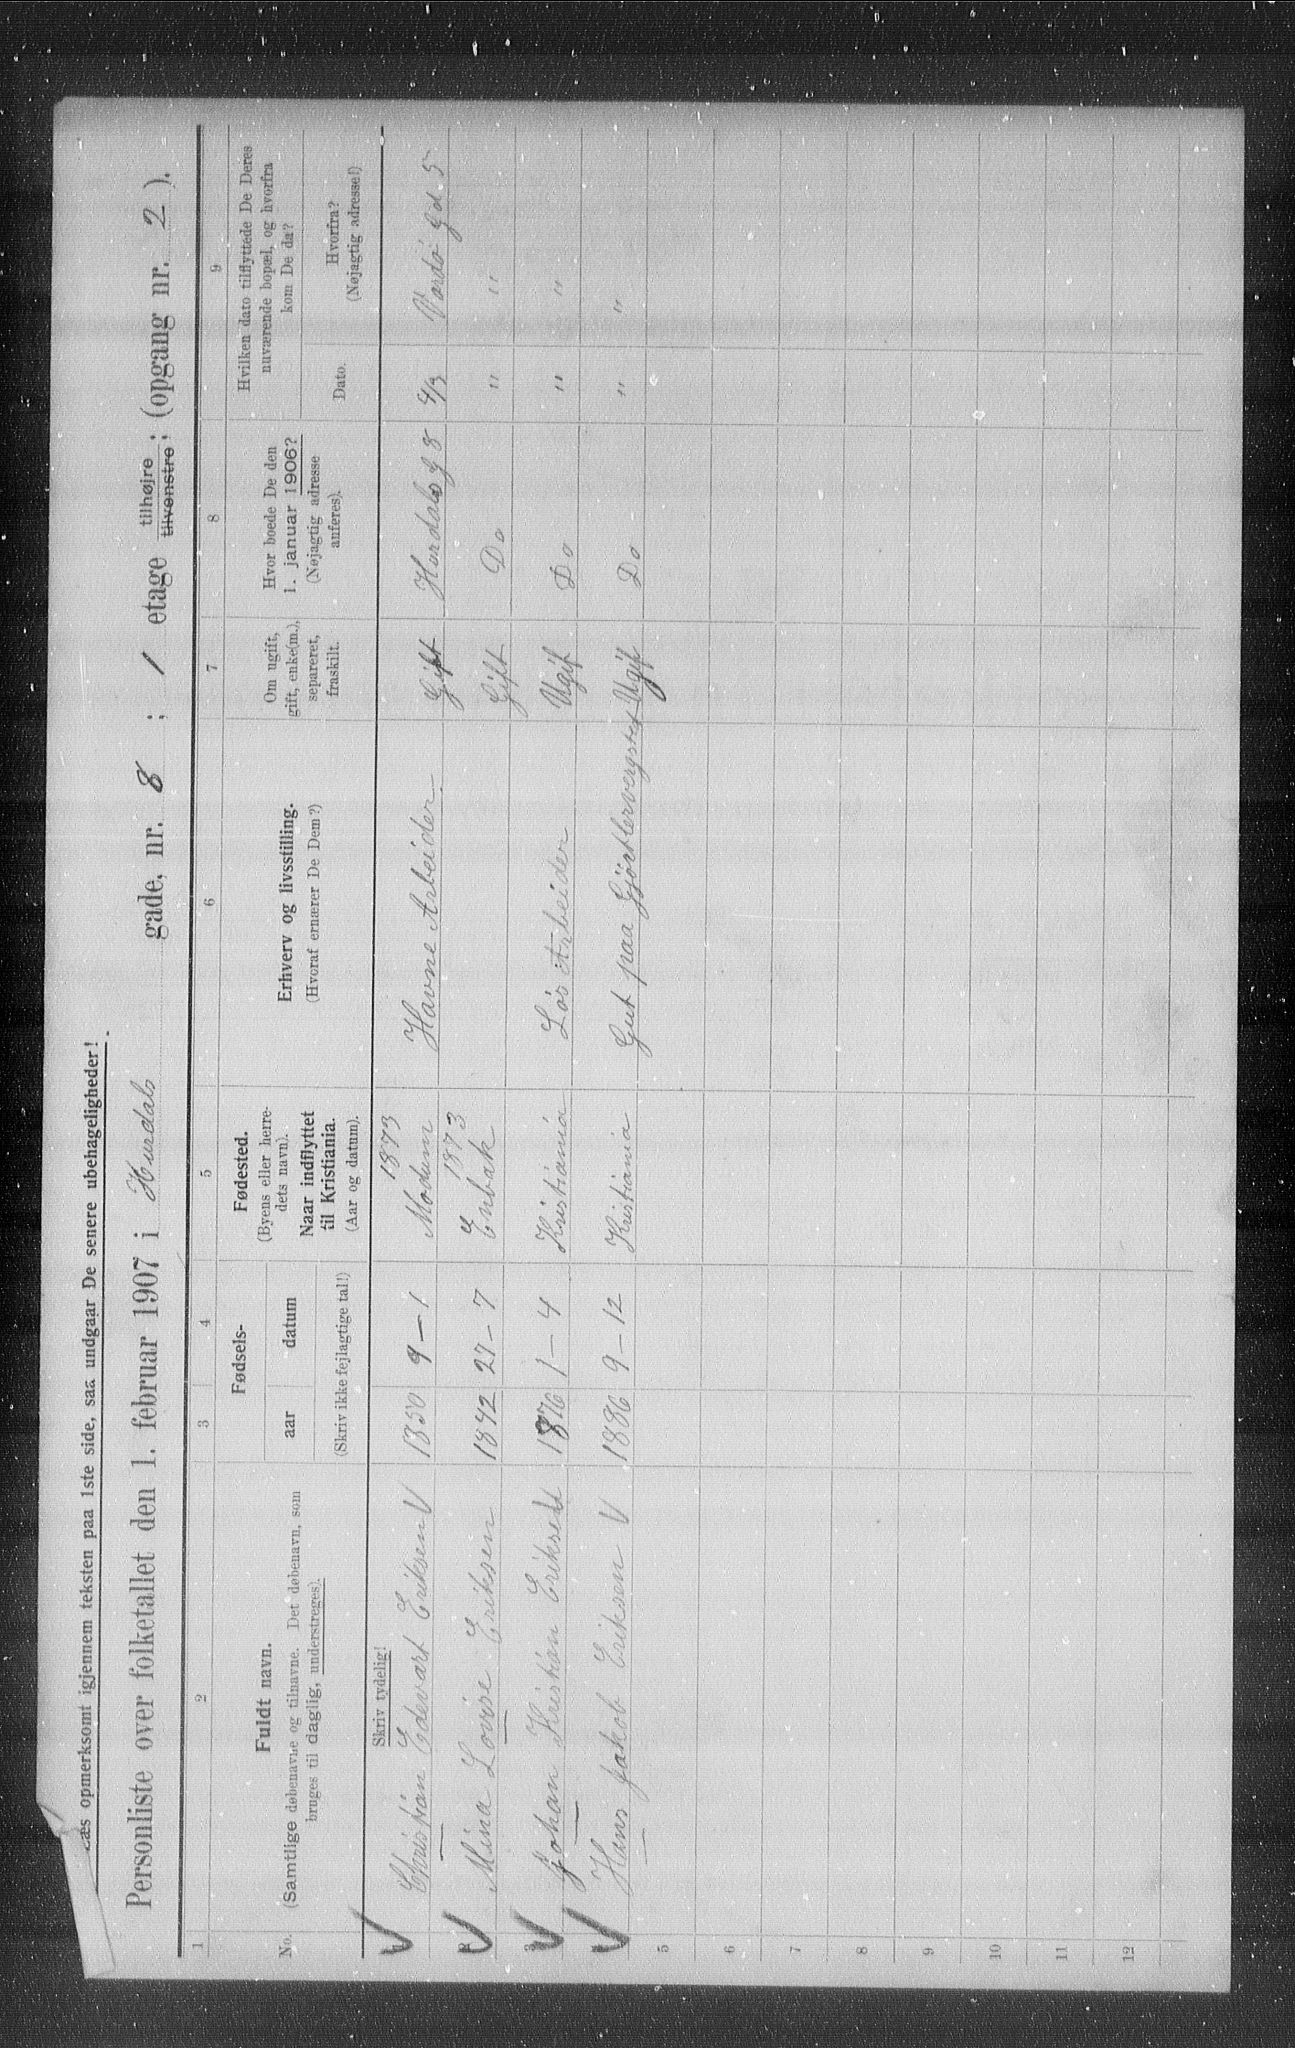 Læs opmerksomt igjennem teksten paa 1ste side, saa undgaar De senere ubehageligheder!
Personliste over folketallet den 1. februar 1907 i Hurdals gade, nr. 8 ; 1 etage tilhøjre tilvenstre; (opgang nr. 2).
1 2 3 4 5 6 7 8 9
No.
Fuldt navn.
(Samtlige døbenavne og tilnavne. Det døbenavn, som
bruges til daglig, understreges).
Fødsels-
aar datum
(Skriv ikke fejlagtige tal!)
Fødested.
(Byens eller herre-
dets navn).
Naar indflyttet
til Kristiania.
(Aar og datum).
Erhverv og livsstilling.
(Hvoraf ernærer De Dem?)
Om ugift,
gift, enke(m.),
separeret,
fraskilt.
Hvor boede De den
1. januar 1906?
(Nøjagtig adresse
anføres).
Hvilken dato tilflyttede De Deres
nuværende bopæl, og hvorfra
kom De da?
Dato.
Hvorfra?
(Nøjagtig adresse!)
Skriv tydelig!
1873
Christian Edvart Eriksen V 1850 9 – 1 Modum Havne Arbeider Gift Hurdals g 8 4/3 Vardö gd 5
1873
Mina Lovise Eriksen 1842 27 – 7 Enbak Gift Do " "
3 Johan Kristian Eriksen V 1876 1 – 4 Kristiania Lös Arbeider Ugif Do " "
Hans Jakob Eriksen V 1886 9 – 12 Kristiania Gut paa Ugif Do " "
5
6
7
8
9
10
11
12